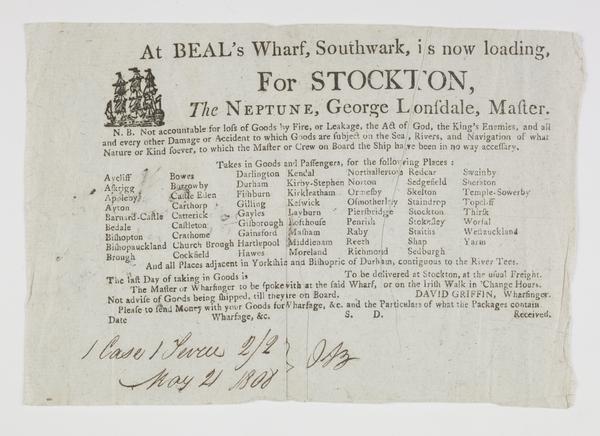 At BEAL's Wharf, Southwark, is now loading,
For STOCKTON,
The NEPTUNE, George Lonſdale, Maſter.
N. B. Not accountable for loſs of Goods by Fire, or Leakage, the Act of God, the King's Enemies, and all
and every other Damage or Accident to which Goods are ſubject on the Sea, Rivers, and Navigation of what
Nature or Kind ſoever, to which the Maſter or Crew on Board the Ship have been in no way acceſſary.
Takes in Goods and Paſſengers, for the following Places:
Aycliff Bowes Darlington Kendal Northallerton Redcar Swainby
Aſkrigg Burrowby Durham Kirby-Stephen Norton Sedgefield Sherston
Appleby Caſtle Eden Fiſhburn Kirkleatham Ormeſby Skelton Temple-Sowerby
Ayton Carthorp Gilling Keſwick Oſmotherley Staindrop Topcliff
Barnard-Caſtle Catterick Gayles Layburn Pierſbridge Stockton Thirſk
Bedale Caſtleton Giſborough Lofthouse Penrith Stokeſley Worſal
Biſhopton Crathorne Gainsford Maſham Raby Staiths Weſtauckland
Biſhopauckland Church Brough Hartlepool Middleham Reeth Shap Yarm
Brough Cockfield Hawes Moreland Richmond Sedburgh
And all Places adjacent in Yorkſhire and Biſhopric of Durham, contiguous to the River Tees.
The laſt Day of taking in Goods is To be delivered at Stockton, at the uſual Freight.
The Maſter or Wharfinger to be ſpoke with at the ſaid Wharf, or on the Iriſh Walk in 'Change Hours.
Not adviſe of Goods being ſhipped, till they're on Board. DAVID GRIFFIN, Wharfinger.
Pleaſe to ſend Money with your Goods for Wharfage, &c. and the Particulars of what the Packages contain
Date Wharfage, &c. S. D. Received.
1 Case 1 2/2
May 21 1808